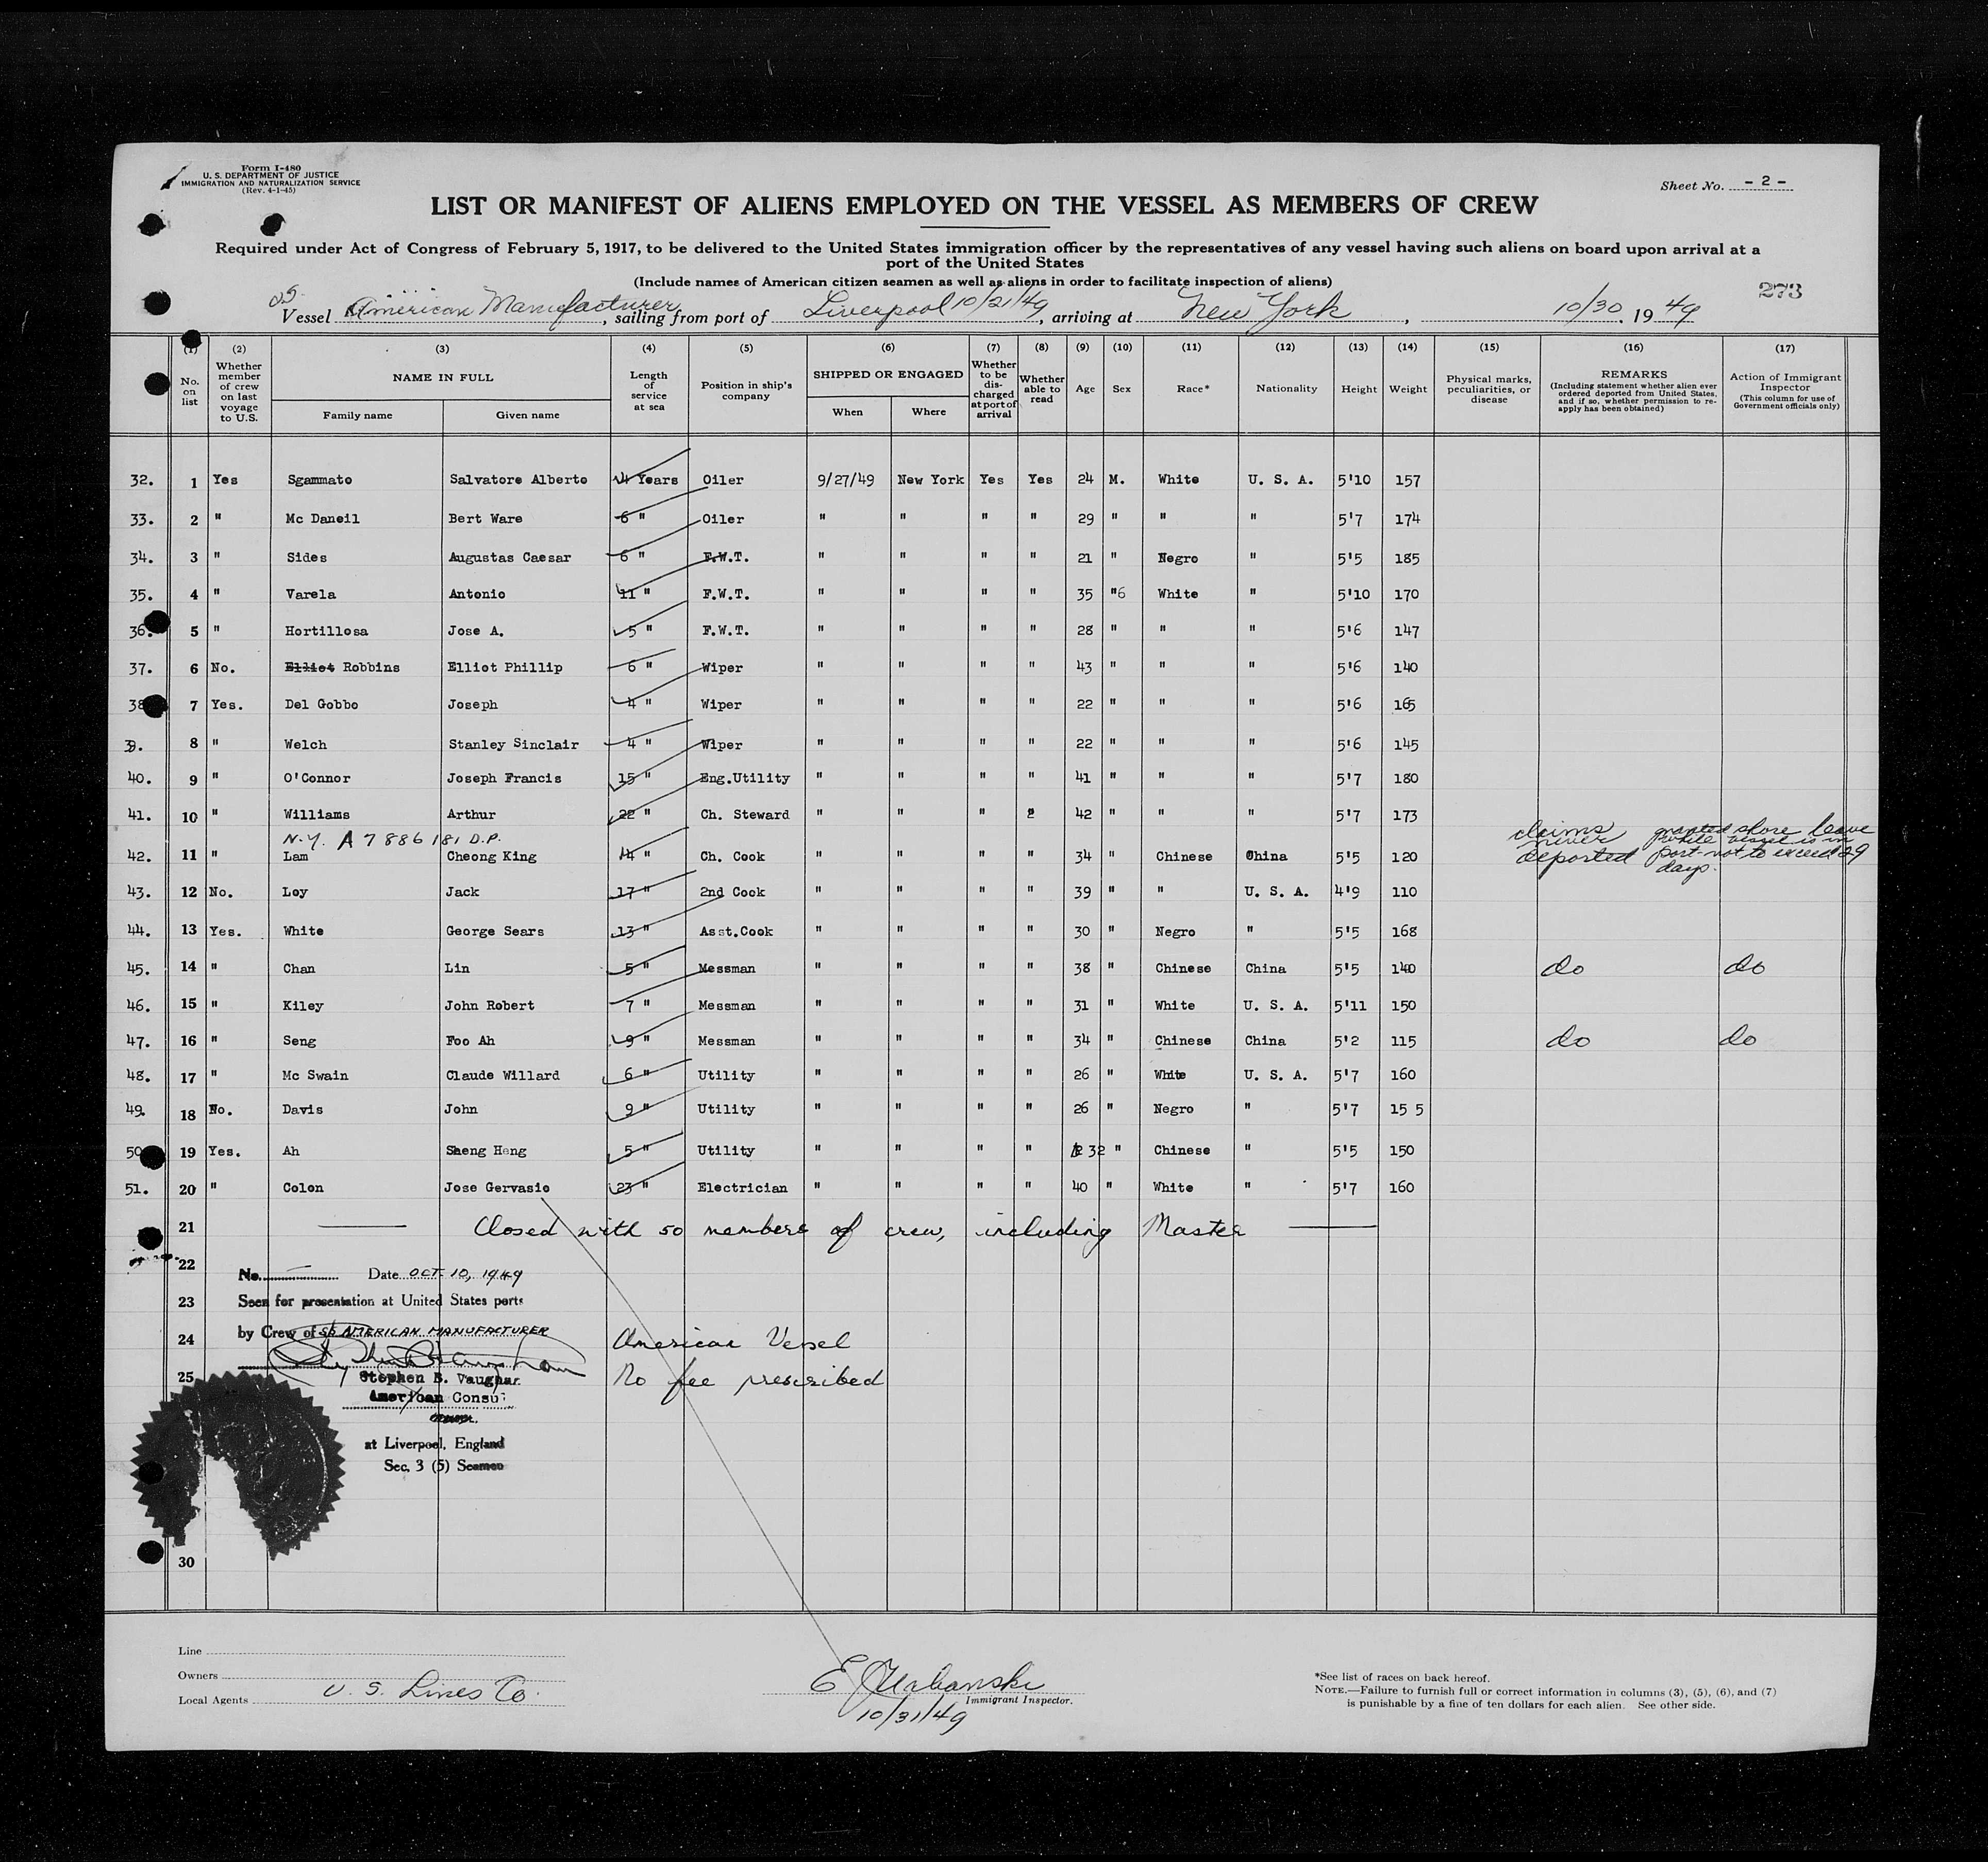 Form I-480
U. S. DEPARTMENT OF JUSTICE
IMMIGRATION AND NATURALIZATION SERVICE
(Rev. 4-1-45)
Sheet No. - 2 -
LIST OR MANIFEST OF ALIENS EMPLOYED ON THE VESSEL AS MEMBERS OF CREW
Required under Act of Congress of February 5, 1917, to be delivered to the United States immigration officer by the representatives of any vessel having such aliens on board upon arrival at a
port of the United States
(Include names of American citizen seamen as well as aliens in order to facilitate inspection of aliens)
273
SS
Vessel American Manufacturer, sailing from port of Liverpool 10/21/49, arriving at New York, 10/30, 1949
(1) No. on list (2) Whether member of crew on last voyage to U.S. (3) NAME IN FULL Family name Given name (4) Length of service at sea (5) Position in ship's company (6) SHIPPED OR ENGAGED When Where (7) Whether to be discharged at port of arrival (8) Whether able to read (9) Age (10) Sex (11) Race* (12) Nationality (13) Height (14) Weight (15) Physical marks, peculiarities, or disease (16) REMARKS (Including statement whether alien ever ordered deported from United States, and if so, whether permission to reapply has been obtained) (17) Action of Immigrant Inspector (This column for use of Government officials only)
32. 1 Yes Sgammato Salvatore Alberto 4 Years Oiler 9/27/49 New York Yes Yes 24 M. White U. S. A. 5'10 157
33. 2 " Mc Daneil Bert Ware 6 " Oiler " " " " 29 " " " 5'7 174
34. 3 " Sides Augustas Caesar 6 " F.W.T. " " " " 21 " Negro " 5'5 185
35. 4 " Varela Antonio 11 " F.W.T. " " " " 35 "6 White " 5'10 170
36. 5 " Hortillosa Jose A. 5 " F.W.T. " " " " 28 " " " 5'6 147
37. 6 No. Elliot Robbins Elliot Phillip 6 " Wiper " " " " 43 " " " 5'6 140
38 7 Yes. Del Gobbo Joseph 4 " Wiper " " " " 22 " " " 5'6 165
39. 8 " Welch Stanley Sinclair 4 " Wiper " " " " 22 " " " 5'6 145
40. 9 " O'Connor Joseph Francis 15 " Eng.Utility " " " " 41 " " " 5'7 180
41. 10 " Williams Arthur 22 " Ch. Steward " " " " 42 " " " 5'7 173
N.Y. A 7 886 181 D.P.
42. 11 " Lam Cheong King 14 " Ch. Cook " " " " 34 " Chinese China 5'5 120 claims never deported granted shore leave while vessel is in port not to exceed 29 days.
43. 12 No. Loy Jack 17 " 2nd Cook " " " " 39 " " U. S. A. 4'9 110
44. 13 Yes. White George Sears 13 " Asst.Cook " " " " 30 " Negro " 5'5 168
45. 14 " Chan Lin 5 " Messman " " " " 38 " Chinese China 5'5 140 do do
46. 15 " Kiley John Robert 7 " Messman " " " " 31 " White U. S. A. 5'11 150
47. 16 " Seng Foo Ah 9 " Messman " " " " 34 " Chinese China 5'2 115 do do
48. 17 " Mc Swain Claude Willard 6 " Utility " " " " 26 " White U. S. A. 5'7 160
49. 18 No. Davis John 9 " Utility " " " " 26 " Negro " 5'7 15 5
50 19 Yes. Ah Sheng Heng 5 " Utility " " " " 32 " Chinese " 5'5 150
51. 20 " Colon Jose Gervasio 23 " Electrician " " " " 40 " White " 5'7 160
21 Closed with 50 members of crew, including Master
22
No. Date OCT. 10, 1949
23 Seen for presentation at United States ports
24 by Crew of SS AMERICAN MANUFACTURER American Vessel
25 Stephen B. Vaughan No fee prescribed
American Consul
at Liverpool, England
Sec. 3 (5) Seamen
30
Line
Owners
Local Agents U. S. Lines Co.
E Urbanski
Immigrant Inspector.
10/31/49
*See list of races on back hereof.
NOTE.—Failure to furnish full or correct information in columns (3), (5), (6), and (7)
is punishable by a fine of ten dollars for each alien. See other side.